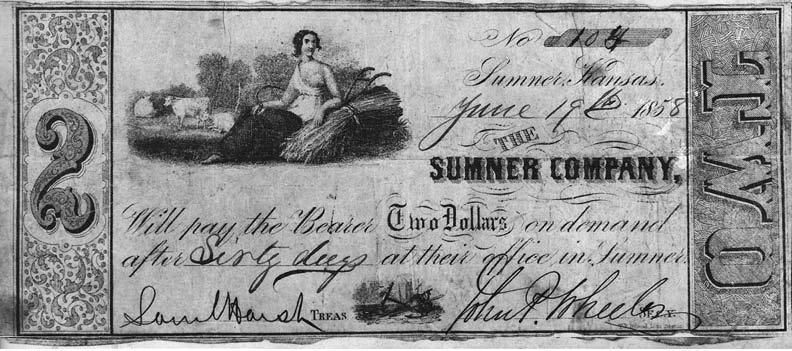 2
No 104
Sumner, Kansas.
June 19th 1858
THE
SUMNER COMPANY,
Will pay the Bearer Two Dollars on demand
after Sixty days at their office in Sumner.
Saml Harsh TREAS
John P. Wheeler SECY.
TWO